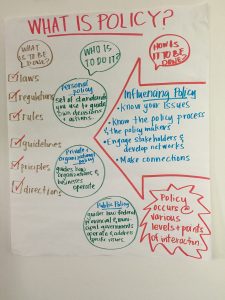 WHAT IS POLICY?
WHAT IS TO BE DONE?
laws
regulations
rules
guidelines
principles
directions
WHO IS TO DO IT?
Personal policy
set of standards
you use to guide
own decisions
+ actions.
Private +
organizational
policy
guides how
organizations +
businesses
operate
Public Policy
guides how federal
provincial + muni-
cipal governments
operate + address
specific issues.
HOW IS IT TO BE DONE?
Influencing Policy
- Know your issues
- Know the policy process
+ the policy makers
- Engage stakeholders +
develop networks
- Make connections
Policy
occurs @
various
levels + points
of interaction